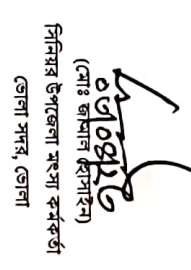 (মোঃ জামাল হোসাইন)
সিনিয়র উপজেলা মৎস্য কর্মকর্তা
ভোলা সদর, ভোলা